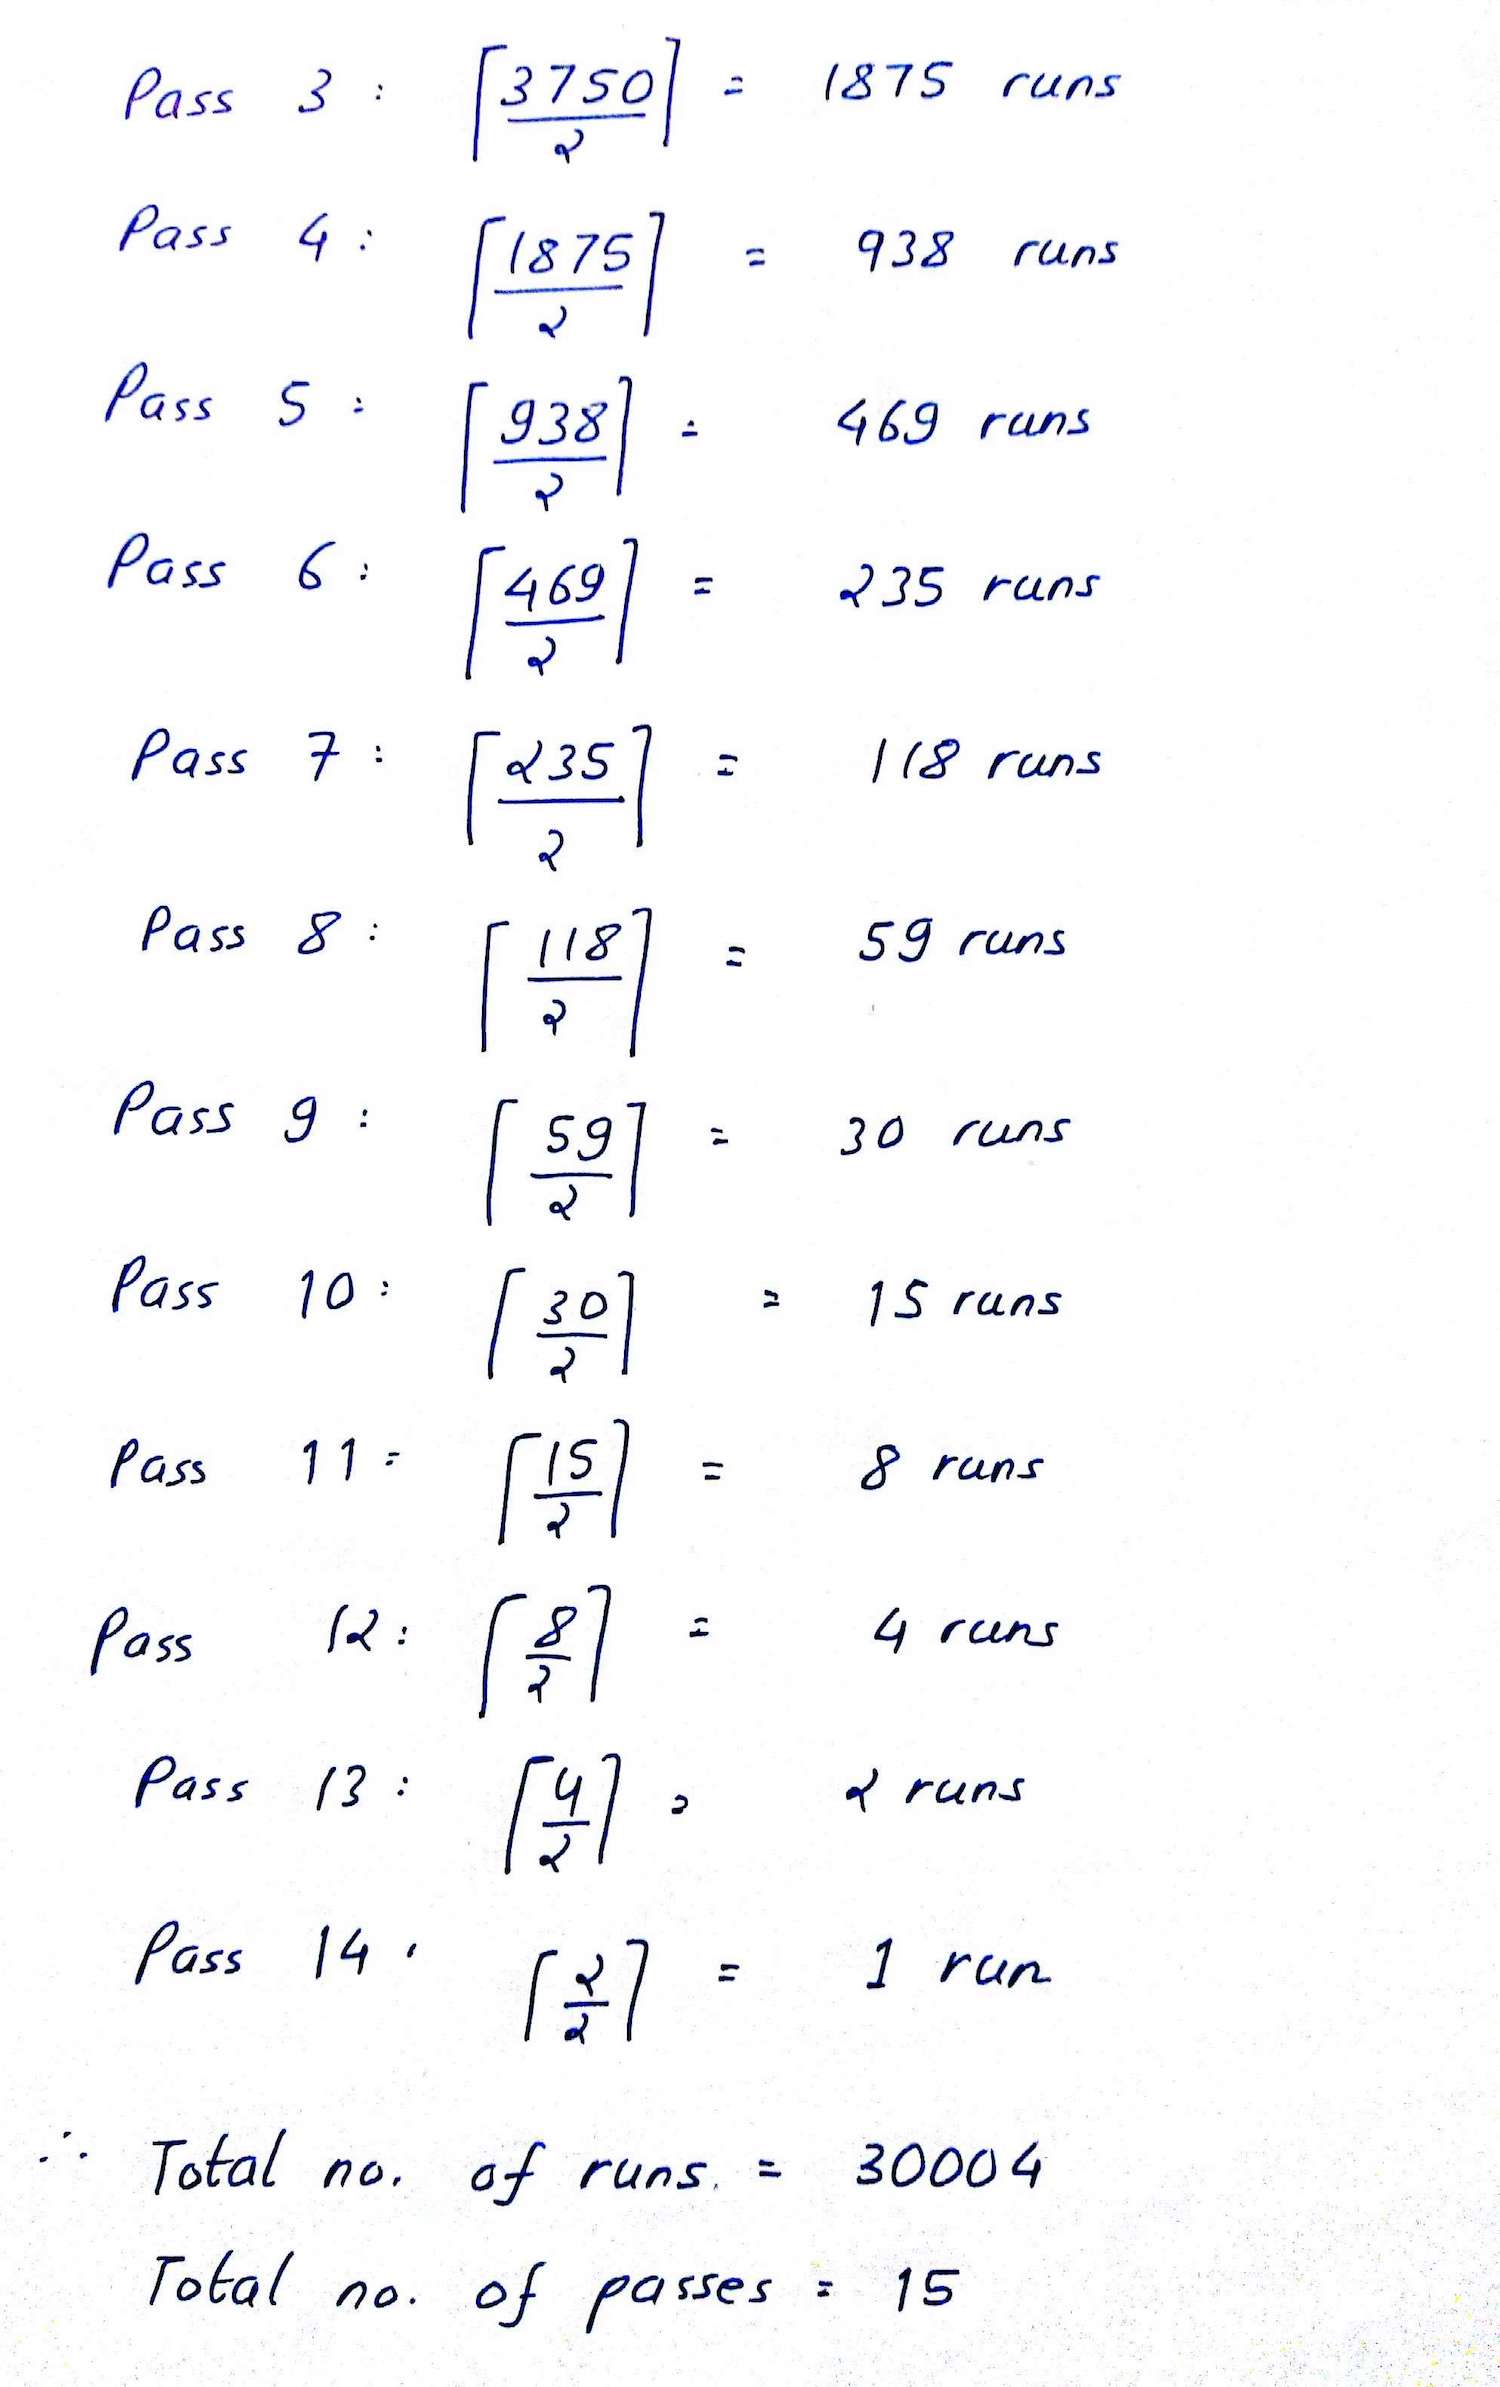 Pass 3 : ⌈3750/2⌉ = 1875 runs
Pass 4 : ⌈1875/2⌉ = 938 runs
Pass 5 : ⌈938/2⌉ = 469 runs
Pass 6 : ⌈469/2⌉ = 235 runs
Pass 7 : ⌈235/2⌉ = 118 runs
Pass 8 : ⌈118/2⌉ = 59 runs
Pass 9 : ⌈59/2⌉ = 30 runs
Pass 10 : ⌈30/2⌉ = 15 runs
Pass 11 = ⌈15/2⌉ = 8 runs
Pass 12 : ⌈8/2⌉ = 4 runs
Pass 13 : ⌈4/2⌉ = 2 runs
Pass 14 : ⌈2/2⌉ = 1 run
∴ Total no. of runs. = 30004
Total no. of passes = 15